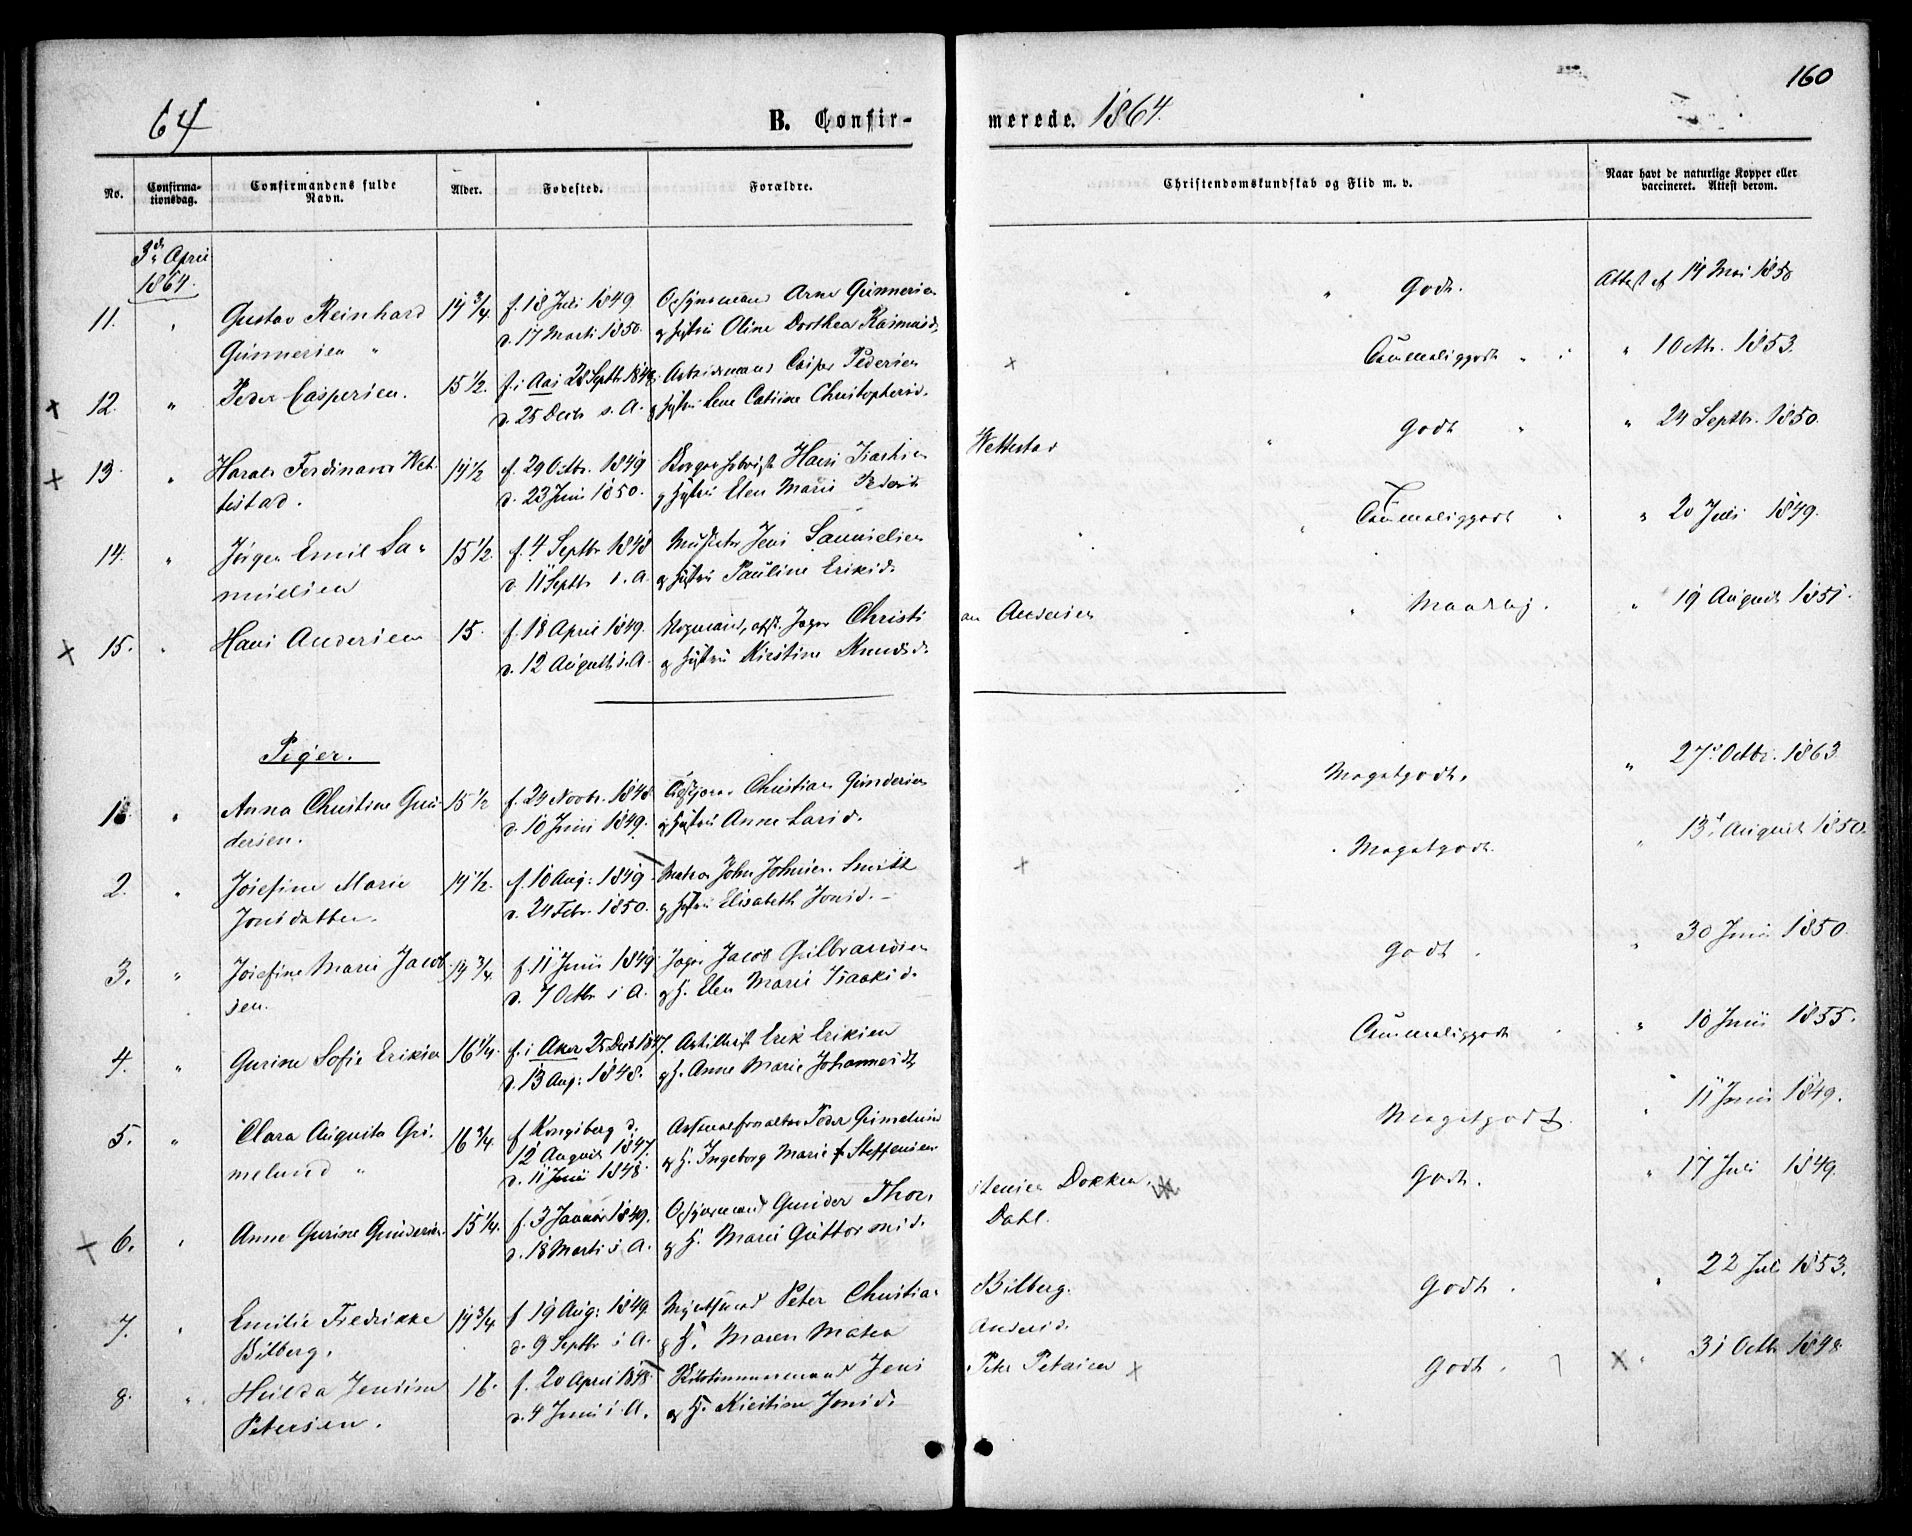 64
B. Confir-
merede. 1864.
160
No.
Confirma-
tionsdag.
Confirmandens fulde
Navn.
Alder.
Fødested.
Forældre.
Christendomskundskab og Flid m. v.
Naar havt de naturlige Kopper eller
vaccineret. Attest derom.
3d April
1864.
11. " Gustav Reinhard 14 3/4 f. 18 Juli 1849 Opsynsmand Arne Gunnersen " " Godt. Attest af 14 Mai 1850
Gunnersen " d. 17 Marts 1850. og Hustru Oline Dorthea Rasmusd.
x 12. " Peder Caspersen. 15 1/2. f. i Aas 28 Septbr 1848 Arbeidsmand Casper Pedersen x Taaleliggodt " " 1 Octbr. 1853.
d. 25 Decbr s. A. og Hustru Lene Catrine Christophersd.
x 13. " Harald Ferdinand Wet- 14 1/2 f. 29 Octbr. 1849 Borger Hans Isachsen Wettestad " Godt " " 24 Septbr. 1850.
testad. d. 23 Juni 1850. og Hustru Elen Marie Pedersd.
14. " Jørgen Emil Sa- 15 1/2. f. 4 Septbr 1848 Jens Samuelsen " " " 20 Juli 1849.
muelsen d. 11 Septbr s. A. og Hustru Pauline Eriksd.
x 15. " Hans Andersen 15. f. 18 April 1849. Jæger Christi an Andersen " Maadelig. " 19 August 1851.
d. 12 August s. A. og Hustru Kirstine Knudsd.
Piger.
1. " Anna Christine Gun- 15 1/2 f. 24 Novbr. 1848 Christian Gundersen Megetgodt. " 27. Octbr. 1863
dersen. d. 10 Juni 1849. og Hustru Anne Larsd.
2. " Josefine Marie 14 1/2. f. 10 Aug: 1849 Matros John Johnsen Smith x Megetgodt. " 13. August 1850.
Jonsdatter. d. 24 Febr. 1850. og Hustru Elisabeth Jonsd.
3. " Josefine Marie Jacob- 14 3/4. f. 11 Juni 1849 Jæger Jacob Gulbrandsen Godt. " 30 Juni 1850.
sen. d. 7 Octbr s A. og H. Elen Marie Isaaksd.
4. " Gurine Sofie Eriksen 16 1/4. f. i Aker 25 Decbr 1847. Erik Eriksen " 10 Juni 1855.
d. 13 Aug: 1848. og H. Anne Marie Johannesdt.
5. " Clara Augusta Gri- 16 3/4. f. Kongsberg d. Arsenalforvalter Peder Grimelund Megetgodt. " 11 Juni 1849.
melund " 12 August 1847. og H. Ingeborg Marie f. Steffensen
d. 11 Juni 1848.
x 6. " Anne Gurine Gundersen 15 1/4. f. 3 Januar 1849. Opsynsmand Gunder Thor- stensen Dokken. Godt. " 17 Juli 1849
d. 18 Marts s. A. og H. Marie Guttormsd. Dahl.
7. " Emilie Fredrikke 14 3/4 f. 19 Aug: 1849. Peter Christian Bilberg. Godt. " 22 Juli 1853.
Bilberg. d. 9 Septbr s A. og H. Maren Mathea Andersd.
8. " Hulda Jensine 16. f. 20 April 1848. Jens Petr Petersen x Godt. x " 31 Octbr 1848
Petersen. d. 4 Juni s. A. og H. Kirstine Jonsd.